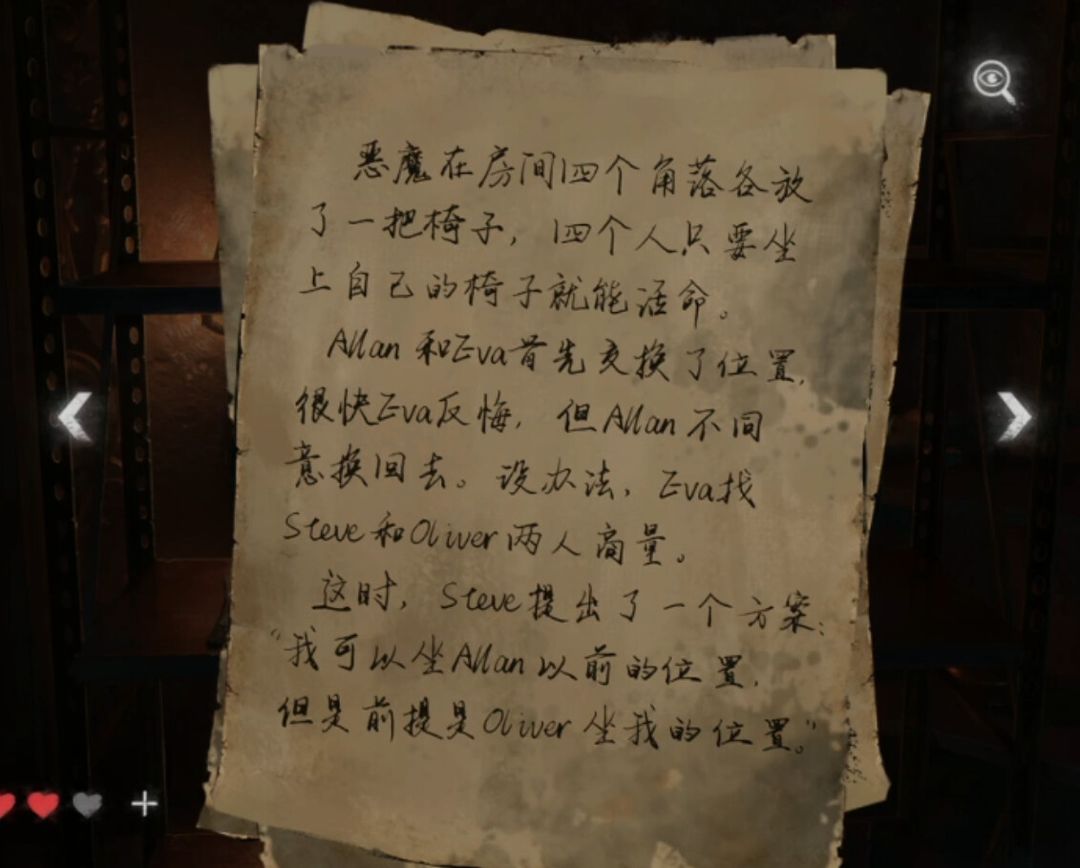 恶魔在房间四个角落各放
了一把椅子，四个人只要坐
上自己的椅子就能活命。
Allan和Eva首先交换了位置，
很快Eva反悔，但Allan不同
意换回去。没办法，Eva找
Steve和Oliver两人商量。
这时，Steve提出了一个方案：
“我可以坐Allan以前的位置，
但是前提是Oliver坐我的位置。”